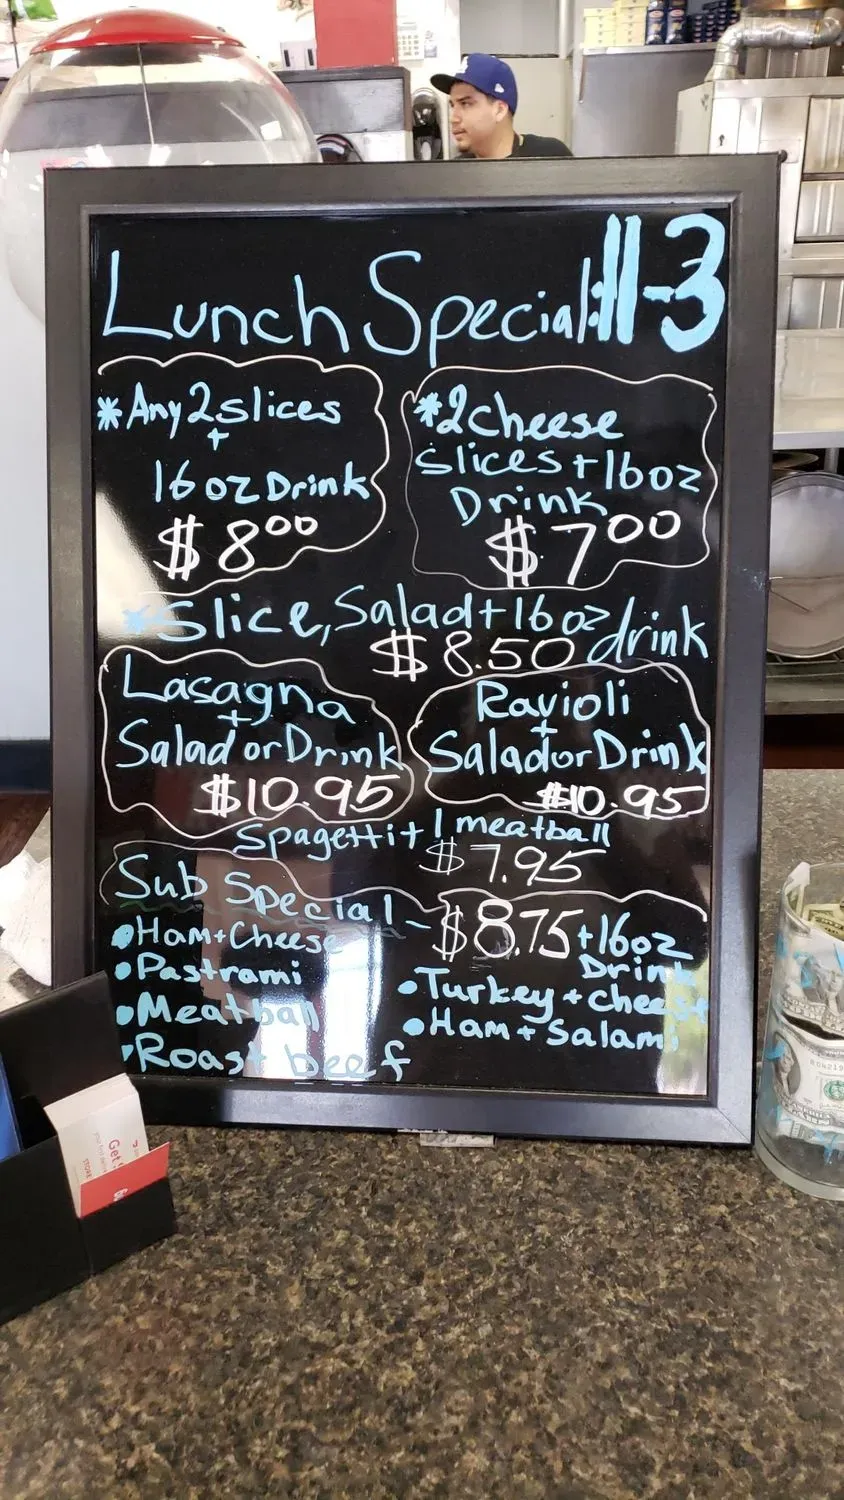 Lunch Special: 11-3
*Any 2 slices
+
16 oz Drink
$8.00
*2 cheese
slices + 16 oz
Drink
$7.00
*Slice, Salad + 16 oz drink
$8.50
Lasagna
+
Salad or Drink
$10.95
Ravioli
+
Salad or Drink
$10.95
Spagetti + 1 meatball
$7.95
Sub Special - $8.75 + 16oz
Drink
•Ham + Cheese
•Pastrami
•Meatball
•Roast beef
•Turkey + cheese
•Ham + Salami
Get
STORE